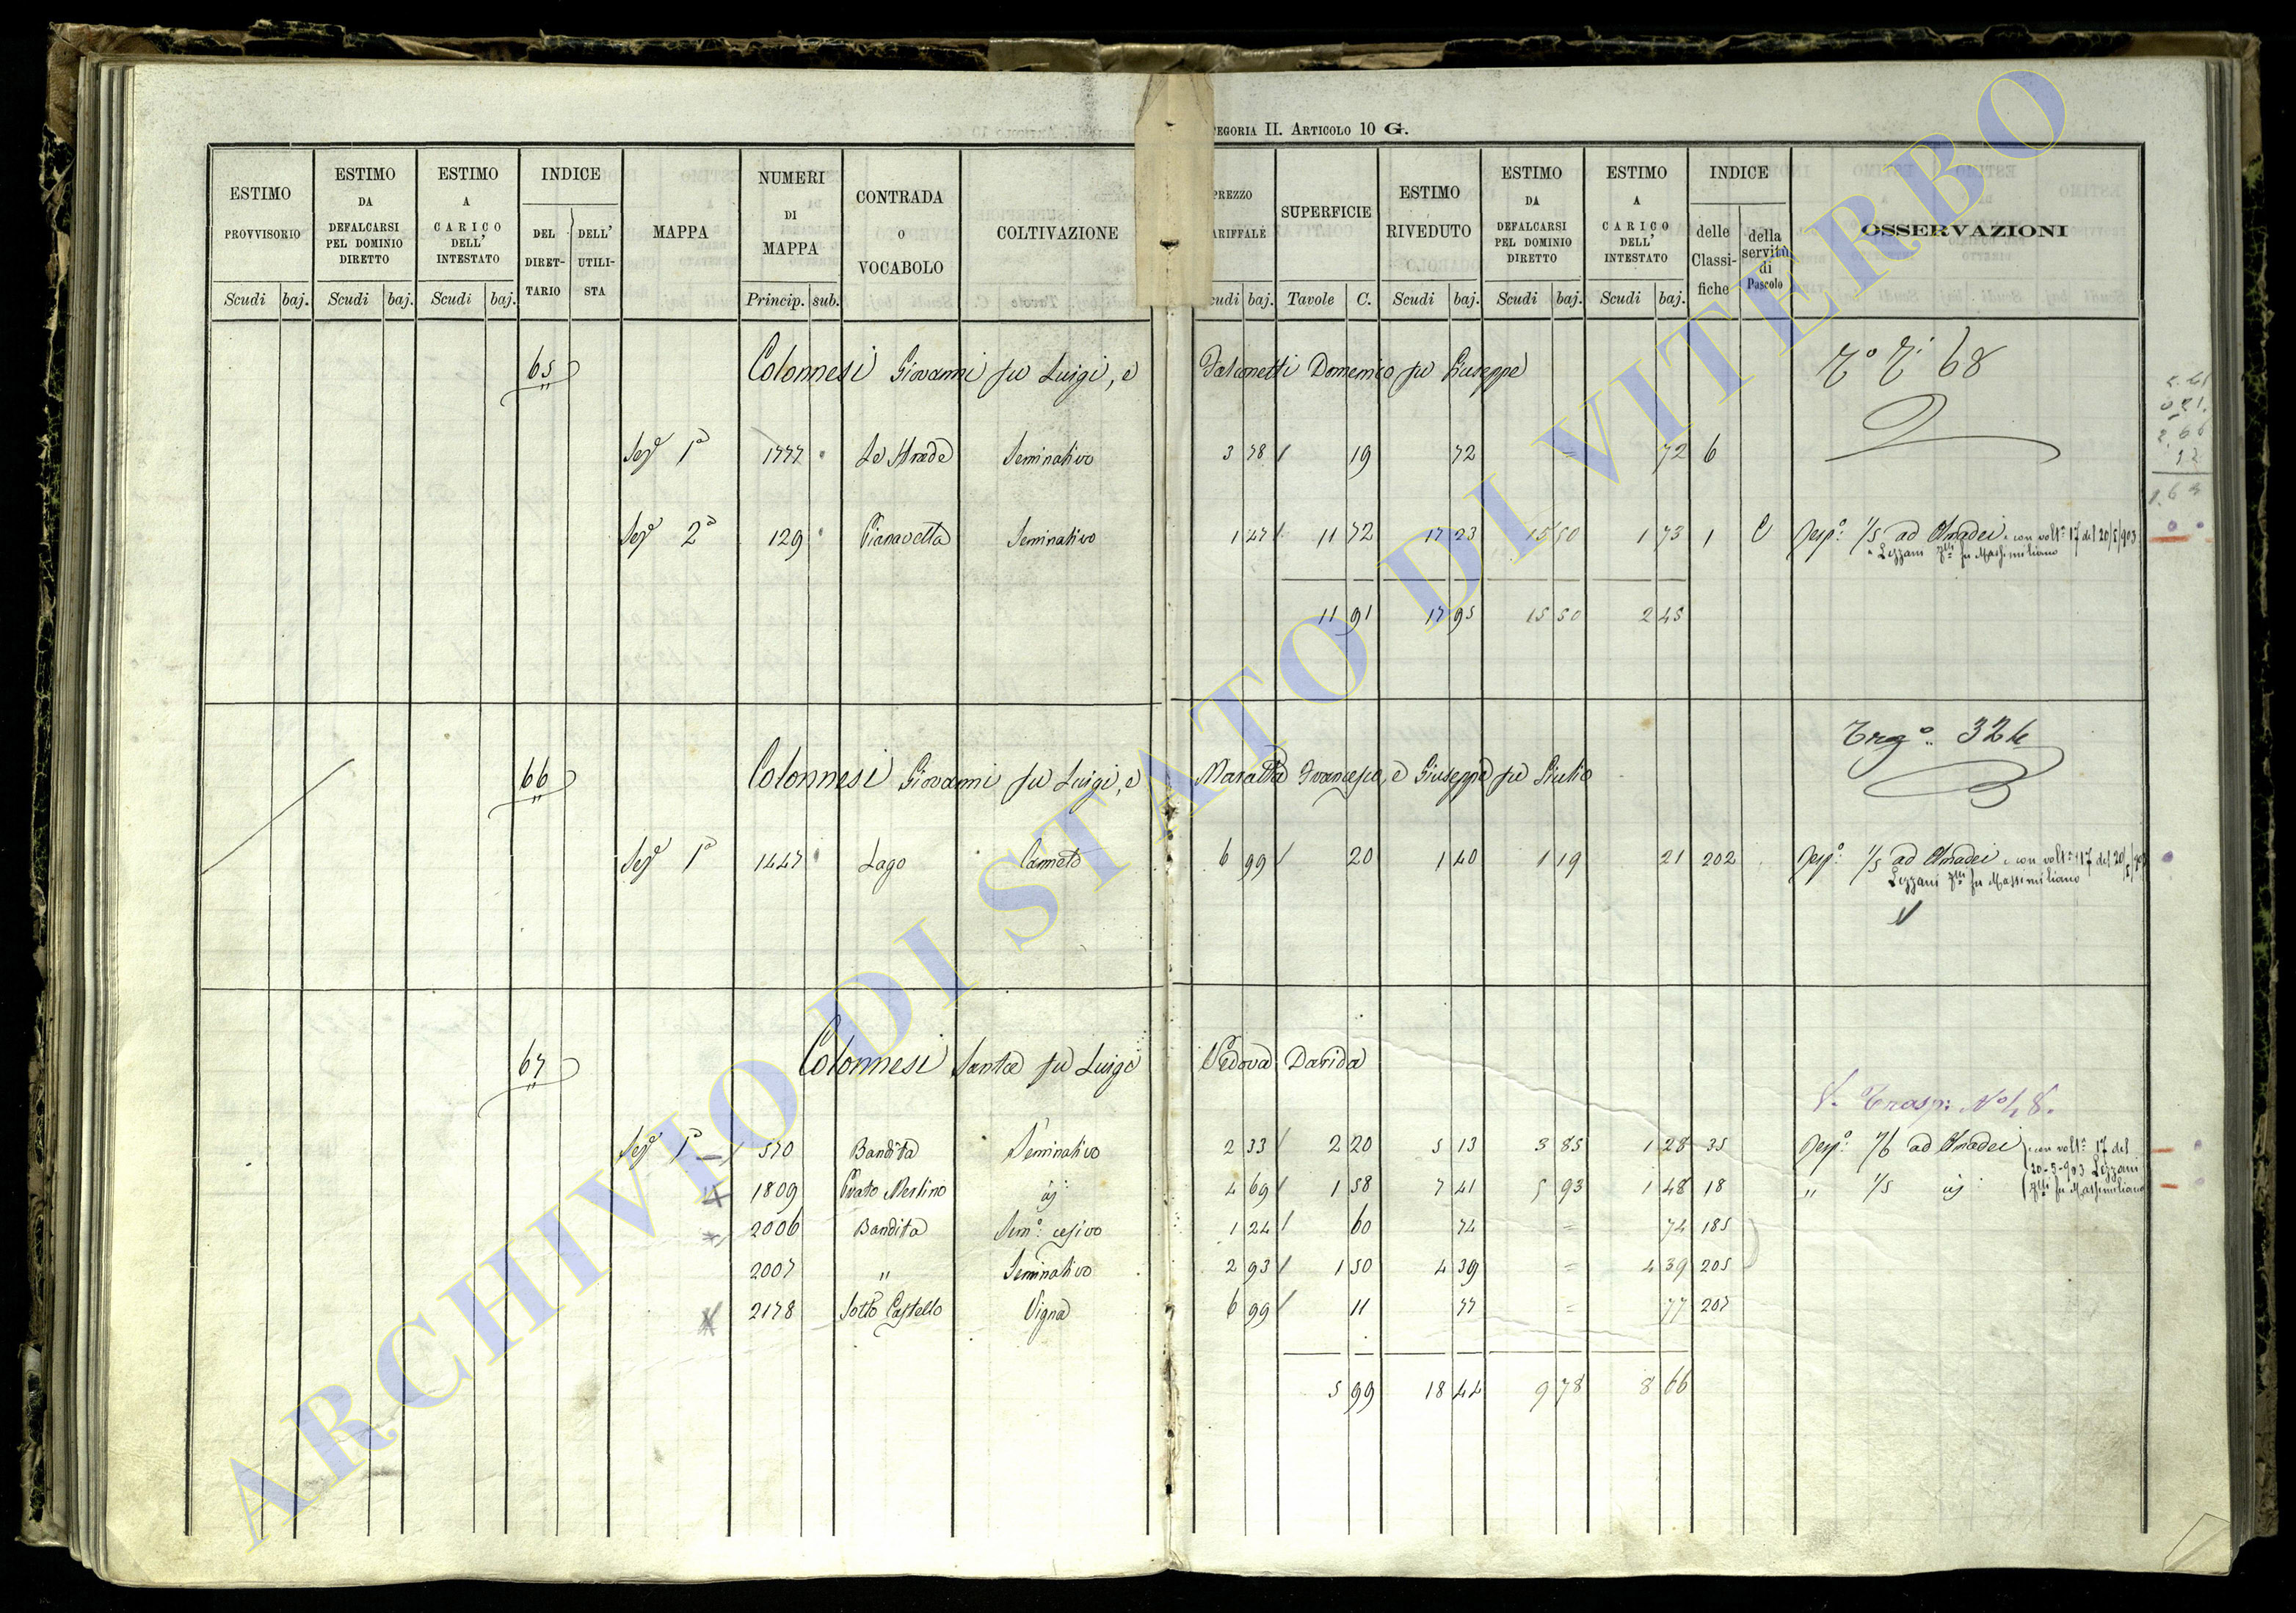 EGORIA II. ARTICOLO 10 G.
ESTIMO PROVVISORIO
ESTIMO DA DEFALCARSI PEL DOMINIO DIRETTO
ESTIMO A CARICO DELL' INTESTATO
INDICE
DEL DIRET-TARIO
DELL' UTILI-STA
MAPPA
NUMERI DI MAPPA
CONTRADA O VOCABOLO
COLTIVAZIONE
PREZZO ARIFFALE
SUPERFICIE
ESTIMO RIVEDUTO
ESTIMO DA DEFALCARSI PEL DOMINIO DIRETTO
ESTIMO A CARICO DELL' INTESTATO
INDICE
delle Classi-fiche
della servitù di Pascolo
OSSERVAZIONI
Scudi baj. Scudi baj. Scudi baj. Princip. sub. cudi baj. Tavole C. Scudi baj. Scudi baj. Scudi baj.
65 Colonnesi Giovanni fu Luigi, e Falconetti Domenico fu Giuseppe 68
Sez.e 1a 1777 Le Strade Seminativo 3 78 19 72 = 72 6
Sez.e 2a 129 Pianavella Seminativo 1 47 11 72 17 23 15 50 1 73 1 C Risp.o 1/5 ad Amadei con volt.a 17 del 20/5/903
Lezzani fu Massimiliano
11 91 17 95 15 50 2 45
66 Colonnesi Giovanni fu Luigi, e Maratta Francesco, e Giuseppe fu Giulio 324
Sez.e 1a 1447 Lago Canneto 6 99 20 1 40 1 19 21 202 Risp.o 1/5 ad Amadei con volt.a 17 del 20/5/903
Lezzani fu Massimiliano
67 Colonnesi Santa fu Luigi Vedova Darida
V. Trasp: No 48.
Sez.e 1a 570 Bandita Seminativo 2 33 2 20 5 13 3 85 1 28 35 Risp.o 1/6 ad Amadei con volt.a 17 del
20-5-903 Lezzani
1809 Prato Merlino id 4 69 1 58 7 41 5 93 1 48 18 " 1/5 id fu Massimiliano
2006 Bandita Sem.o cesivo 1 24 60 74 = 74 185
2007 " Seminativo 2 93 1 50 4 39 = 4 39 205
2178 Sotto Castello Vigna 6 99 11 77 = 77 207
5 99 18 44 9 78 8 66
ARCHIVIO DI STATO DI VITERBO